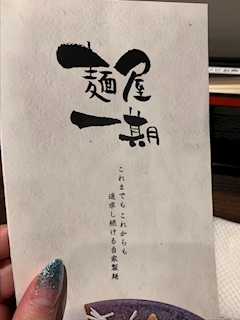 麺屋
一期
これまでも これからも
追求し続ける自家製麺